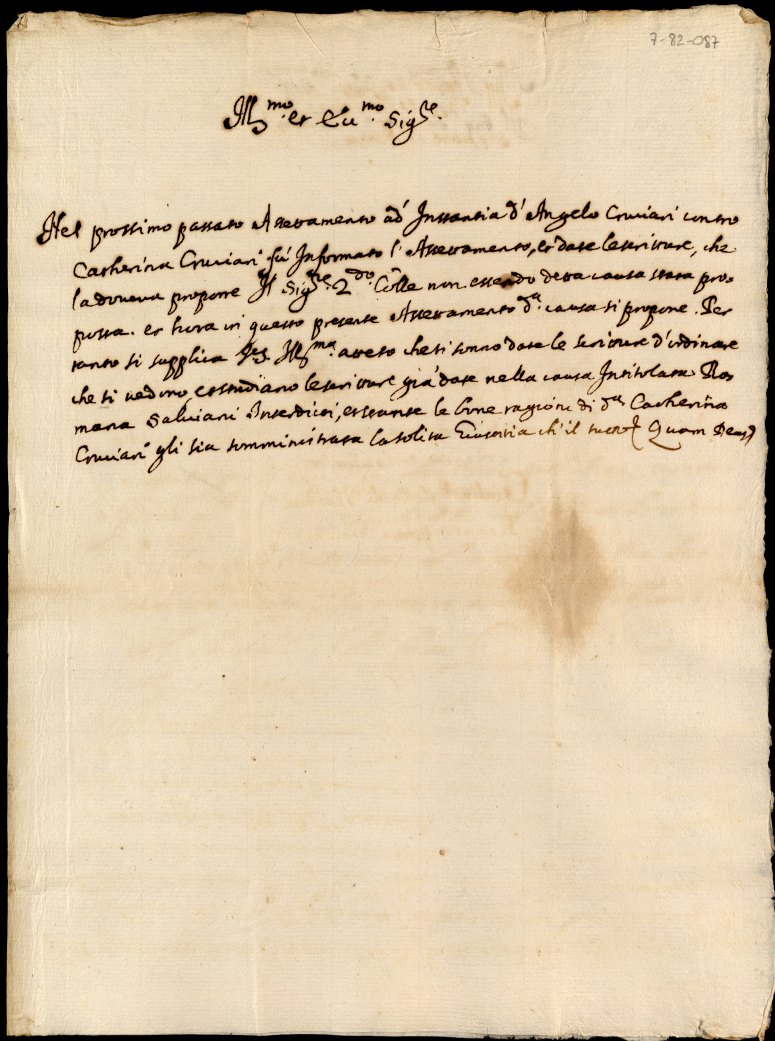 7-82-087
Ill.mo et Ecc.mo Sig.re
Nel prossimo passato Assettamento ad Instantia d'Angelo Cruciari contro
Catherina Cruciari fù Informato l'Assettamento, et date le scritture, che
la doveva proporre Il Sig.re 2.do Colle non essendo detta causa stata pro=
posta. et hora in questo presente Assettamento d.a causa si propone. Per
tanto si supplica V.S. Ill.ma atteso che si sonno date le scritture d'ordinare
che si vedino, et studiano le scritture già date nella causa Intitolata Ro=
mana Salviani Interdicti, et stante le bone ragioni di d.a Catherina
Cruciari gli sia somministrata la solita Giustitia ch'il tutto Quam Deus